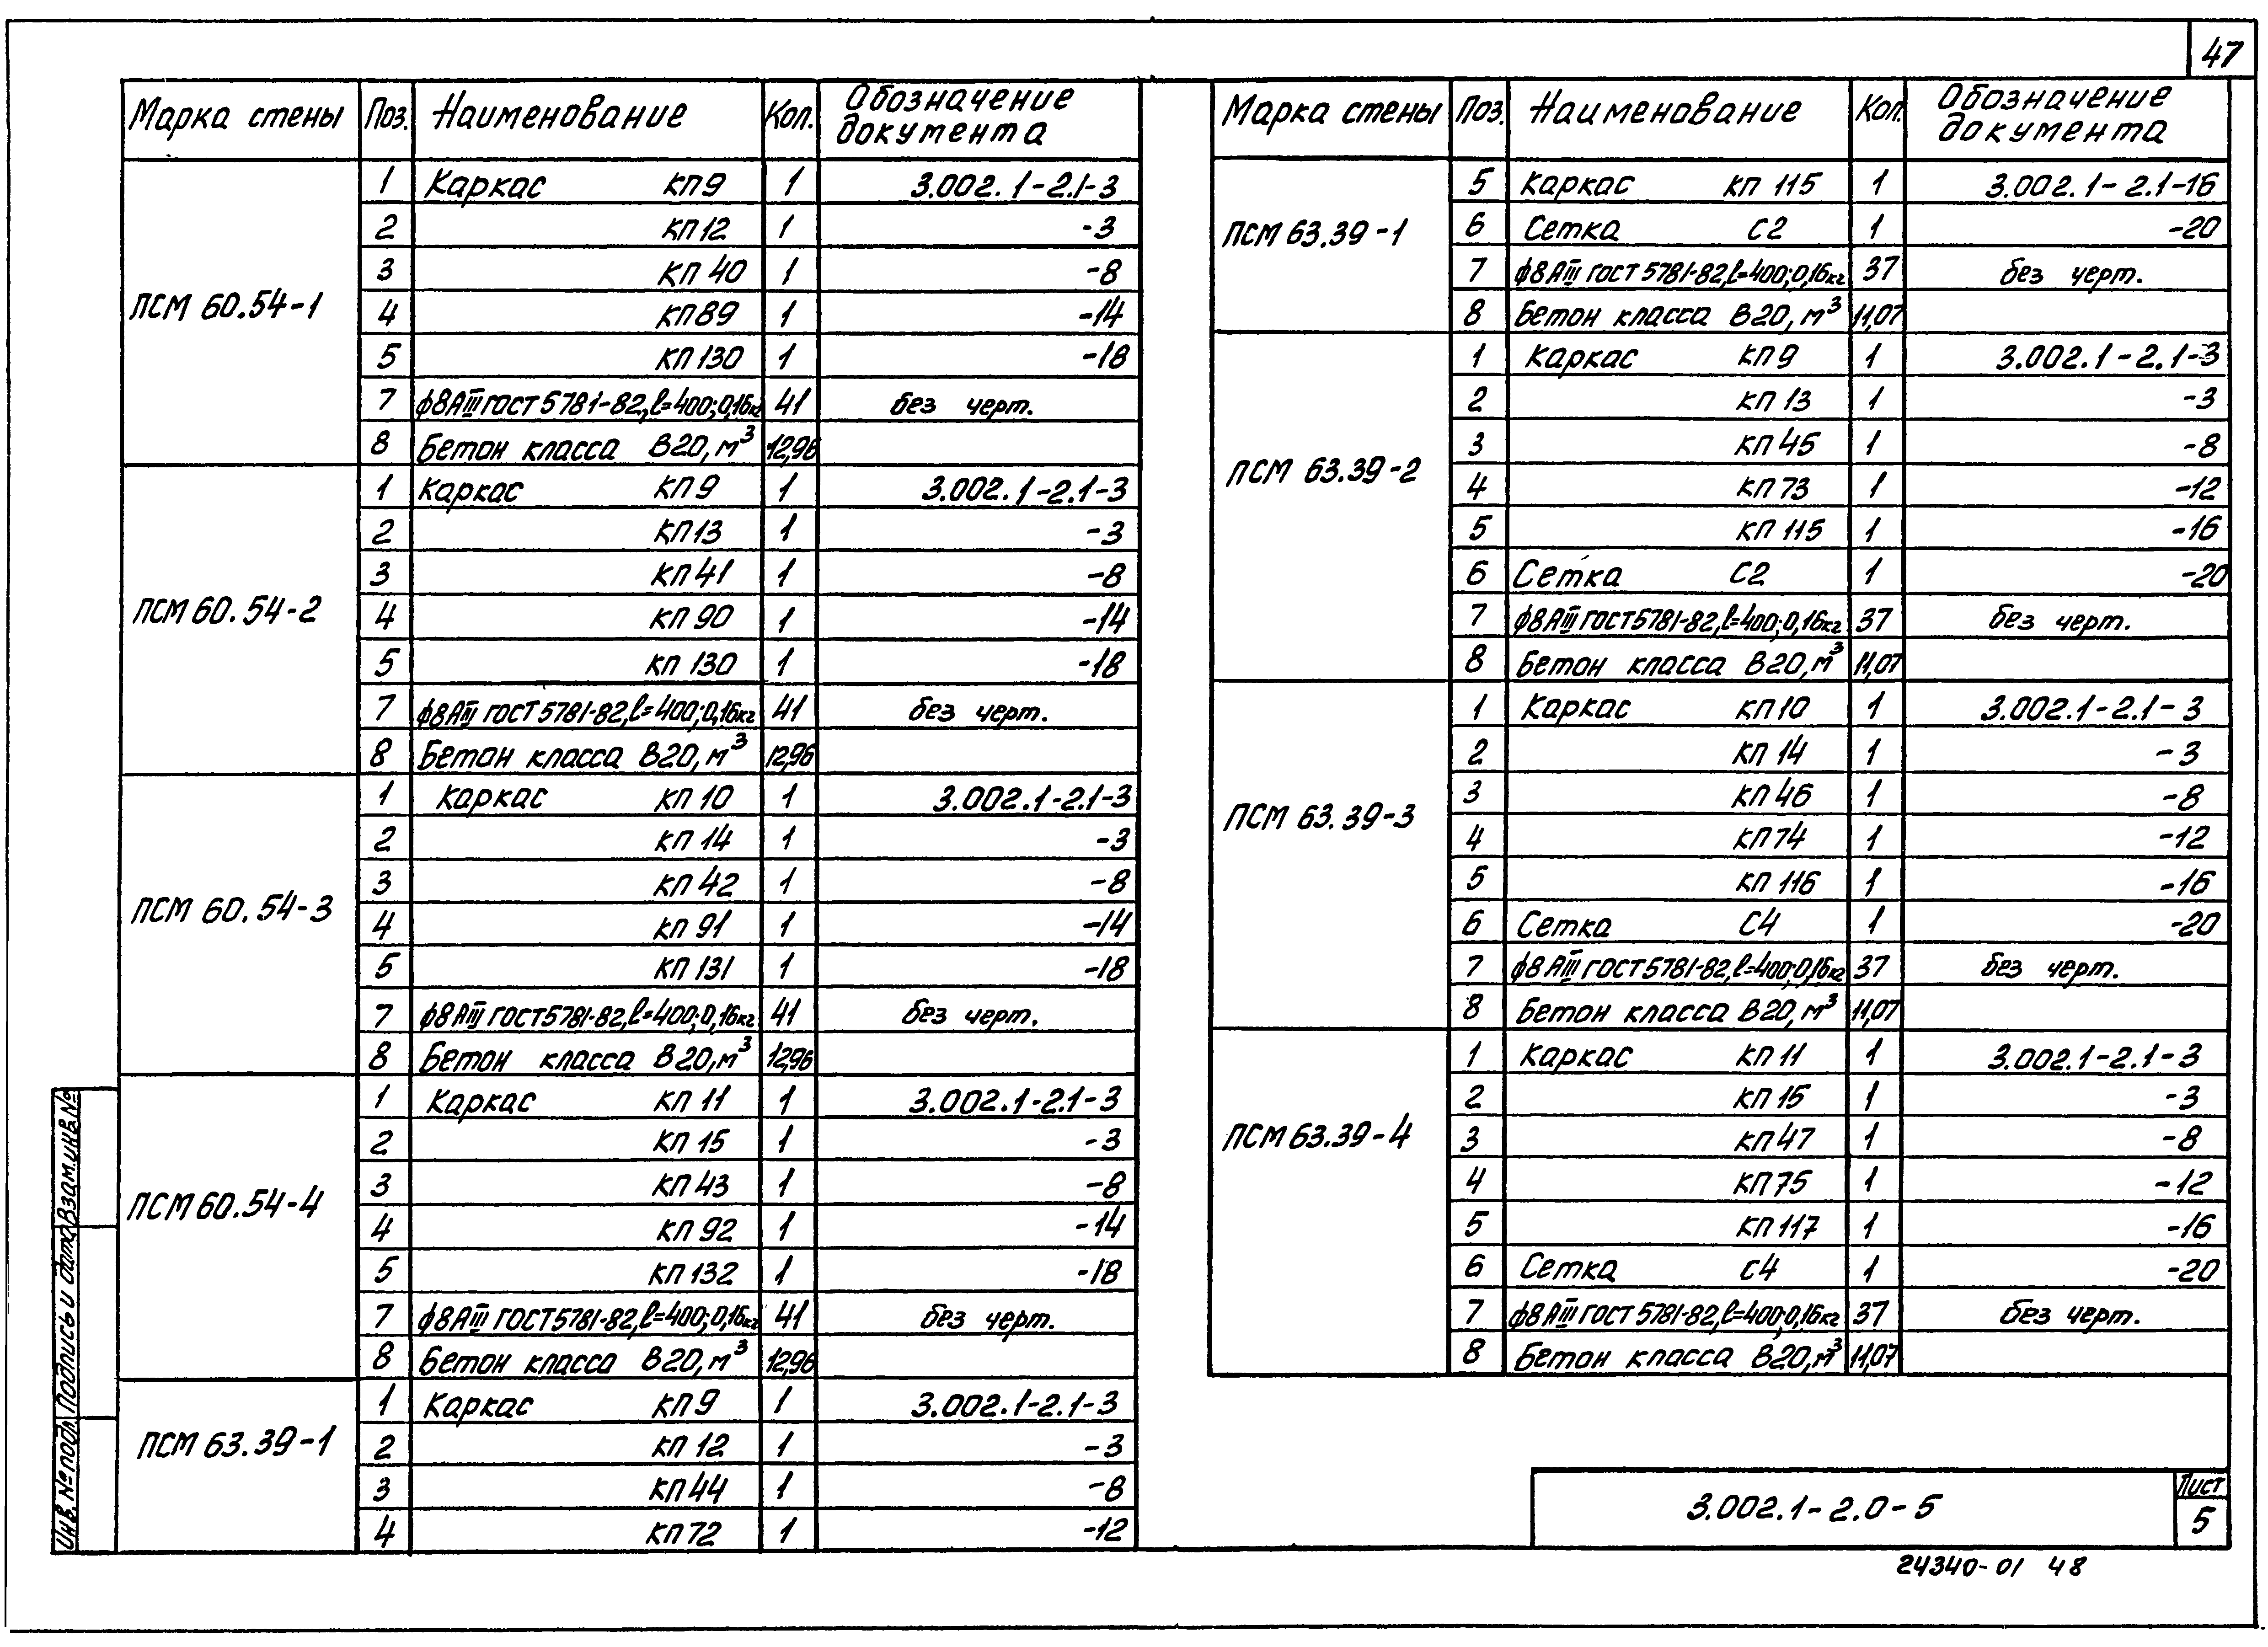 47
Марка стены Поз. Наименование Кол. Обозначение документа
ПСМ 60.54-1
1 Каркас КП9 1 3.002.1-2.1-3
2 КП12 1 -3
3 КП 40 1 -8
4 КП89 1 -14
5 КП130 1 -18
7 ф8АIII ГОСТ 5781-82, l=400; 0,16кг 41 без черт.
8 Бетон класса В20, м³ 12,96
ПСМ 60.54-2
1 Каркас КП9 1 3.002.1-2.1-3
2 КП13 1 -3
3 КП41 1 -8
4 КП 90 1 -14
5 КП 130 1 -18
7 ф8АIII ГОСТ 5781-82, l=400; 0,16кг 41 без черт.
8 Бетон класса В20, м³ 12,96
ПСМ 60.54-3
1 Каркас КП 10 1 3.002.1-2.1-3
2 КП 14 1 -3
3 КП 42 1 -8
4 КП 91 1 -14
5 КП 131 1 -18
7 ф8АIII ГОСТ 5781-82, l=400; 0,16кг 41 без черт.
8 Бетон класса В20, м³ 12,96
ПСМ 60.54-4
1 Каркас КП 11 1 3.002.1-2.1-3
2 КП 15 1 -3
3 КП 43 1 -8
4 КП 92 1 -14
5 КП 132 1 -18
7 ф8АIII ГОСТ 5781-82, l=400; 0,16кг 41 без черт.
8 Бетон класса В20, м³ 12,96
ПСМ 63.39-1
1 Каркас КП9 1 3.002.1-2.1-3
2 КП 12 1 -3
3 КП44 1 -8
4 КП72 1 -12
Марка стены Поз. Наименование Кол. Обозначение документа
ПСМ 63.39-1
5 Каркас КП 115 1 3.002.1-2.1-16
6 Сетка С2 1 -20
7 ф8АIII ГОСТ 5781-82, l=400; 0,16кг 37 без черт.
8 Бетон класса В20, м³ 11,07
ПСМ 63.39-2
1 Каркас КП9 1 3.002.1-2.1-3
2 КП 13 1 -3
3 КП45 1 -8
4 КП73 1 -12
5 КП 115 1 -16
6 Сетка С2 1 -20
7 ф8АIII ГОСТ 5781-82, l=400; 0,16кг 37 без черт.
8 Бетон класса В20, м³ 11,07
ПСМ 63.39-3
1 Каркас КП10 1 3.002.1-2.1-3
2 КП 14 1 -3
3 КП46 1 -8
4 КП74 1 -12
5 КП 116 1 -16
6 Сетка С4 1 -20
7 ф8АIII ГОСТ 5781-82, l=400; 0,16кг 37 без черт.
8 Бетон класса В20, м³ 11,07
ПСМ 63.39-4
1 Каркас КП 11 1 3.002.1-2.1-3
2 КП 15 1 -3
3 КП47 1 -8
4 КП75 1 -12
5 КП 117 1 -16
6 Сетка С4 1 -20
7 ф8АIII ГОСТ 5781-82, l=400; 0,16кг 37 без черт.
8 Бетон класса В20, м³ 11,07
Инв. № подл. Подпись и дата Взам. инв. №
3.002.1-2.0-5
Лист
5
24340-01 48